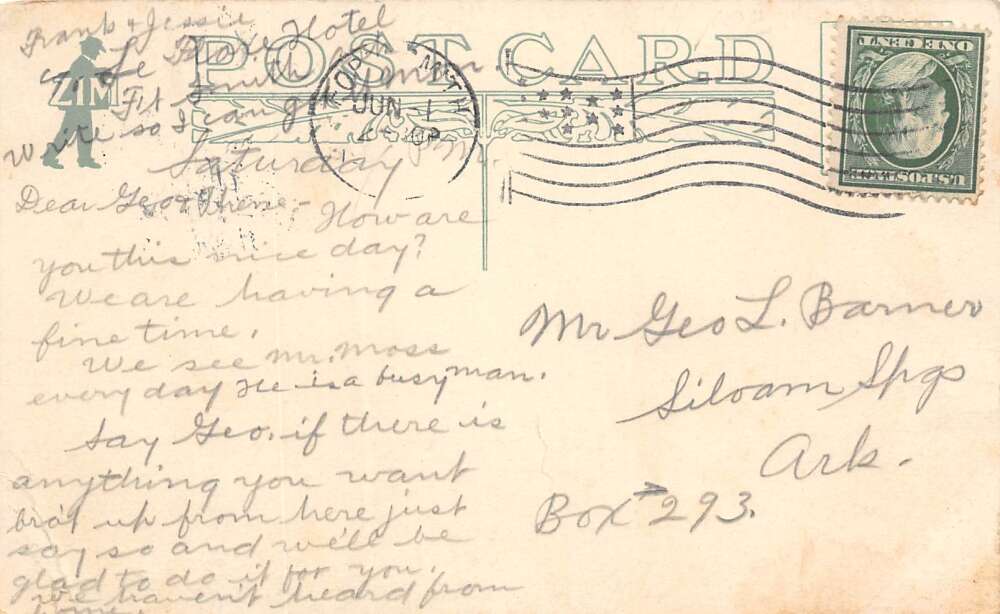 POST CARD
ZIM
JUN 1
U.S. POSTAGE
ONE CENT
Saturday P.M.
Dear Geo & Irene:-
How are
you this nice day?
We are having a
fine time.
We see Mr. Moss
every day He is a busy man.
Say Geo. if there is
anything you want
bro't up from here just
say so and we'll be
glad to do it for you.
We haven't heard from
home.
Write so I can get
Ft Smith
Hotel
Frank & Jessie
Mr Geo L. Barner
Siloam Spgs
Ark.
Box # 293.